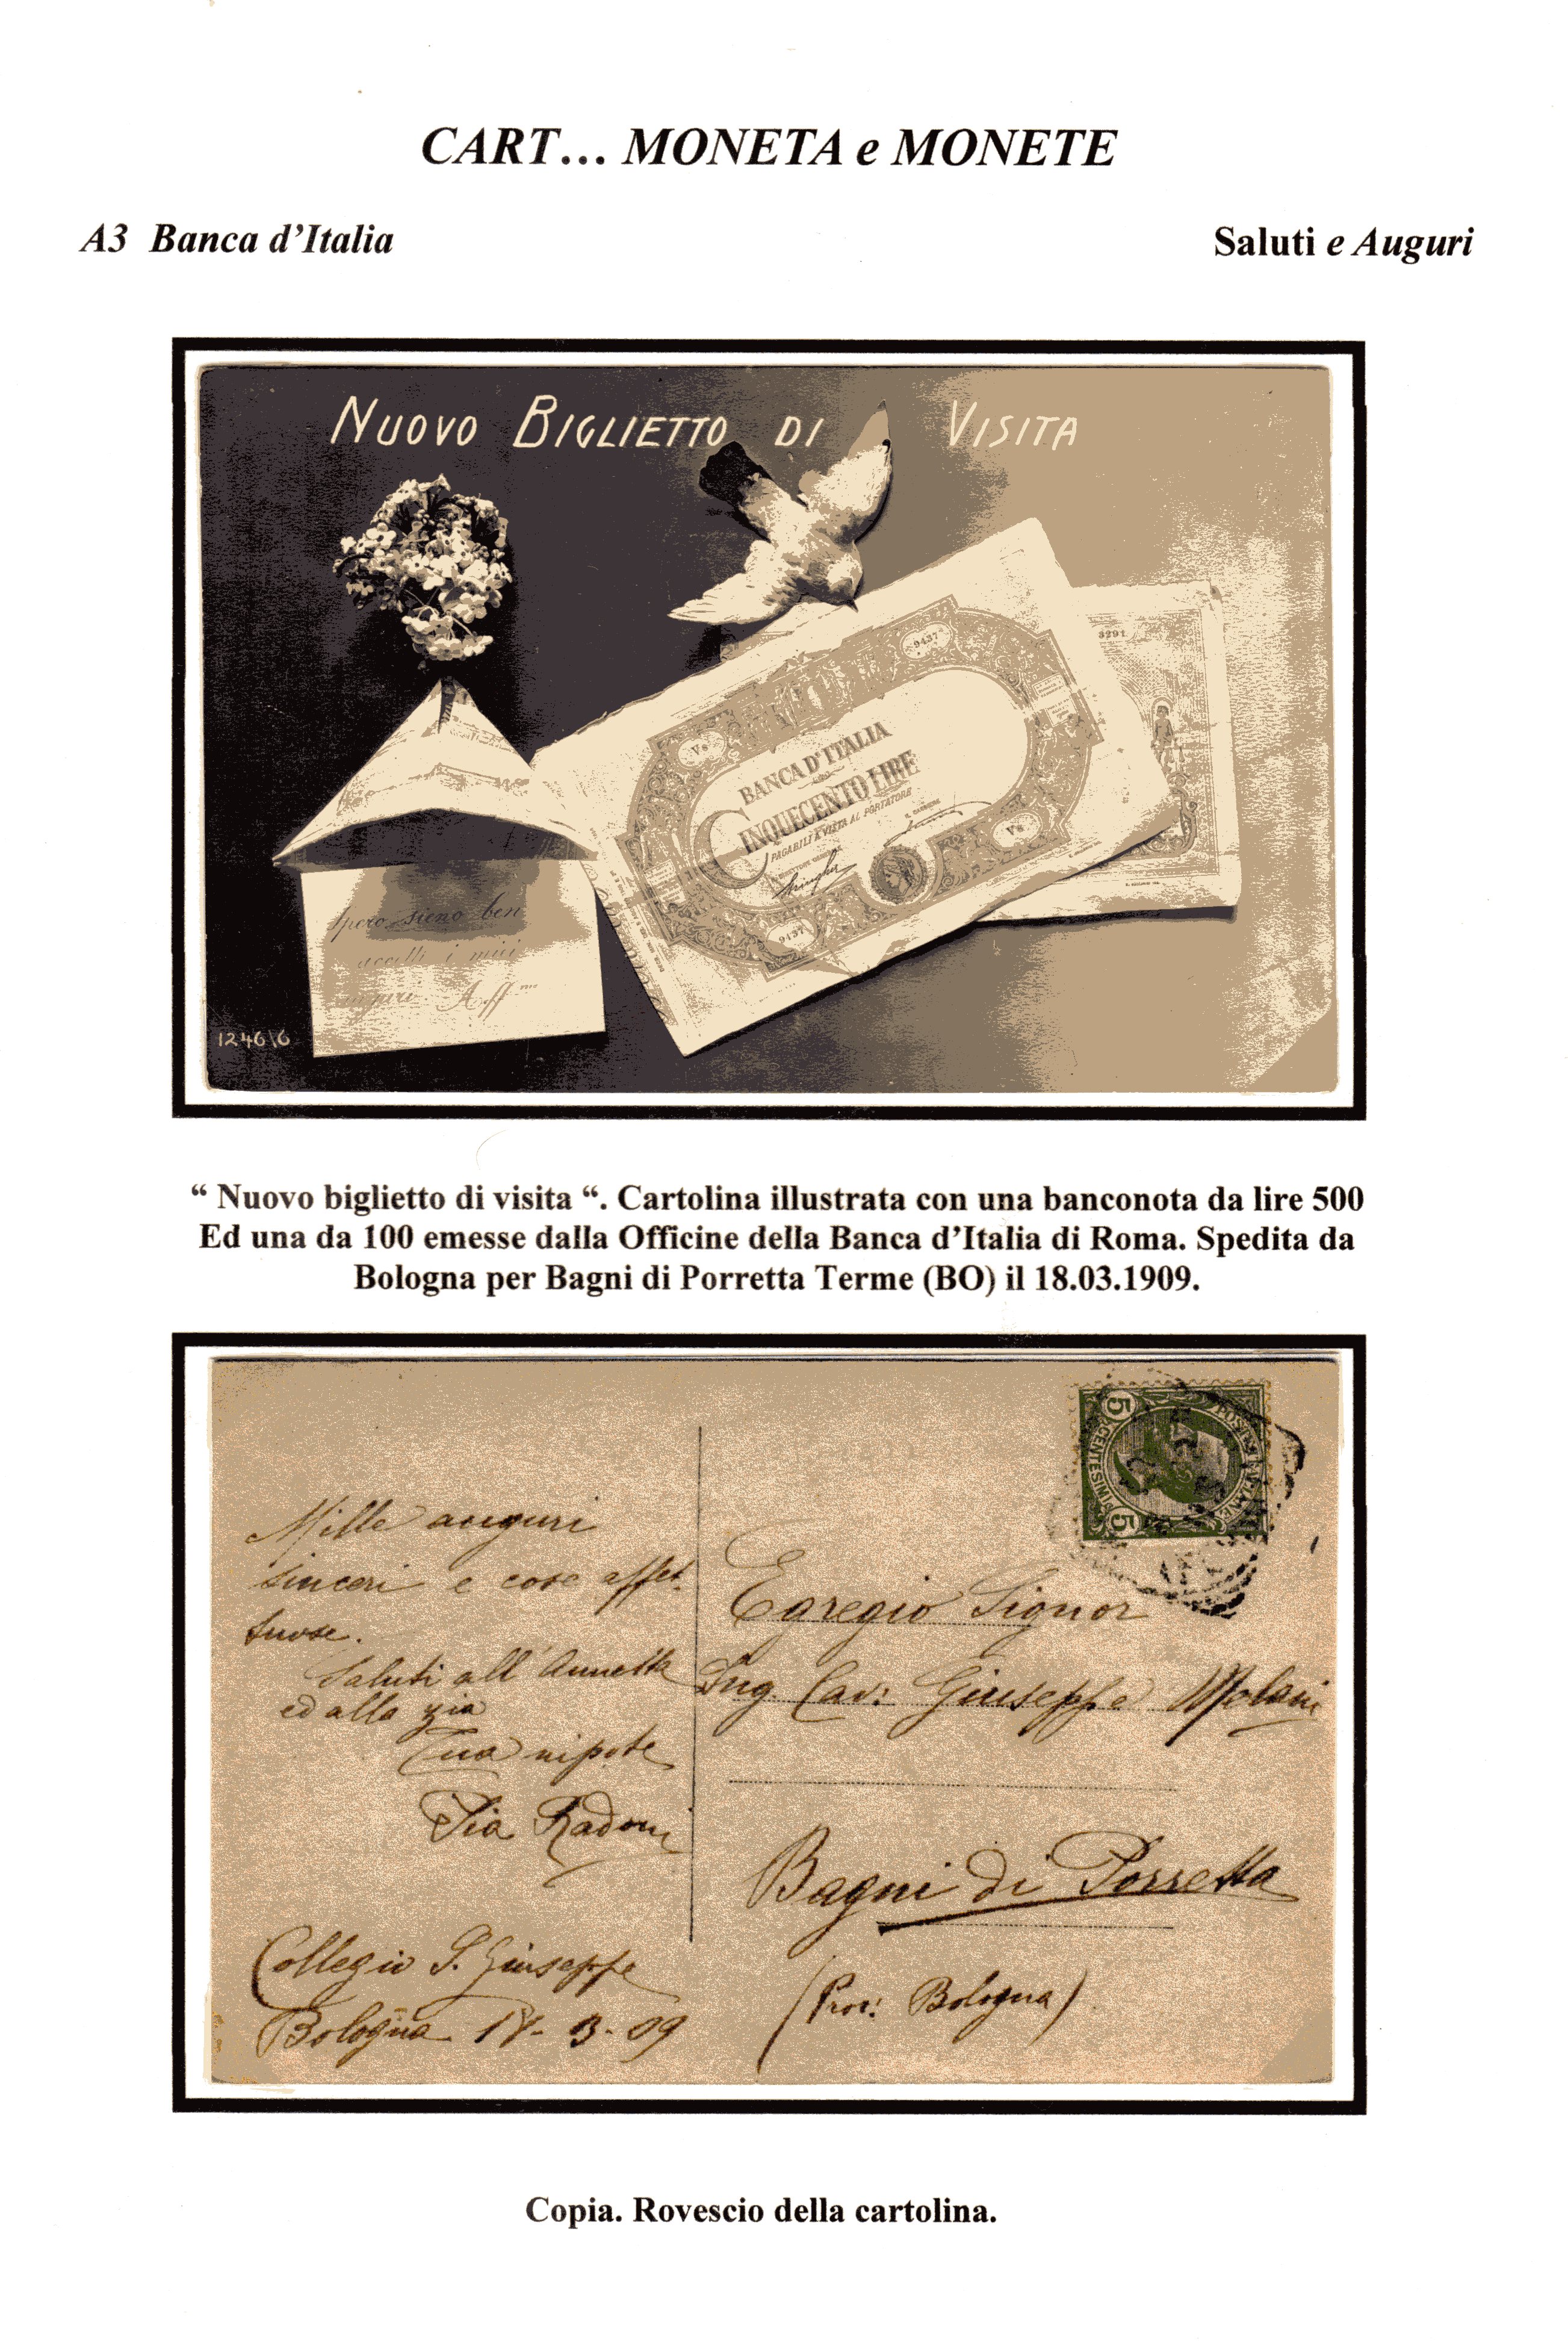 CART… MONETA e MONETE
A3 Banca d’Italia
Saluti e Auguri
NUOVO BIGLIETTO DI VISITA
9437
3291
Vs
BANCA D'ITALIA
CINQUECENTO LIRE
PAGABILI A VISTA AL PORTATORE
Vs
9437
Spero sieno ben
accetti i miei
auguri Aff.mo
1246/6
“ Nuovo biglietto di visita “. Cartolina illustrata con una banconota da lire 500
Ed una da 100 emesse dalla Officine della Banca d’Italia di Roma. Spedita da
Bologna per Bagni di Porretta Terme (BO) il 18.03.1909.
5 CENTESIMI 5
POSTE ITALIANE
Mille auguri
sinceri e cose affet-
tuose.
Saluti all' Annetta
ed alla zia
Tua nipote
Pia
Egregio Signor
Ing. Cav: Giuseppe
Bagni di Porretta
(Prov: Bologna)
Collegio S. Giuseppe
Bologna 18-3-09
Copia. Rovescio della cartolina.